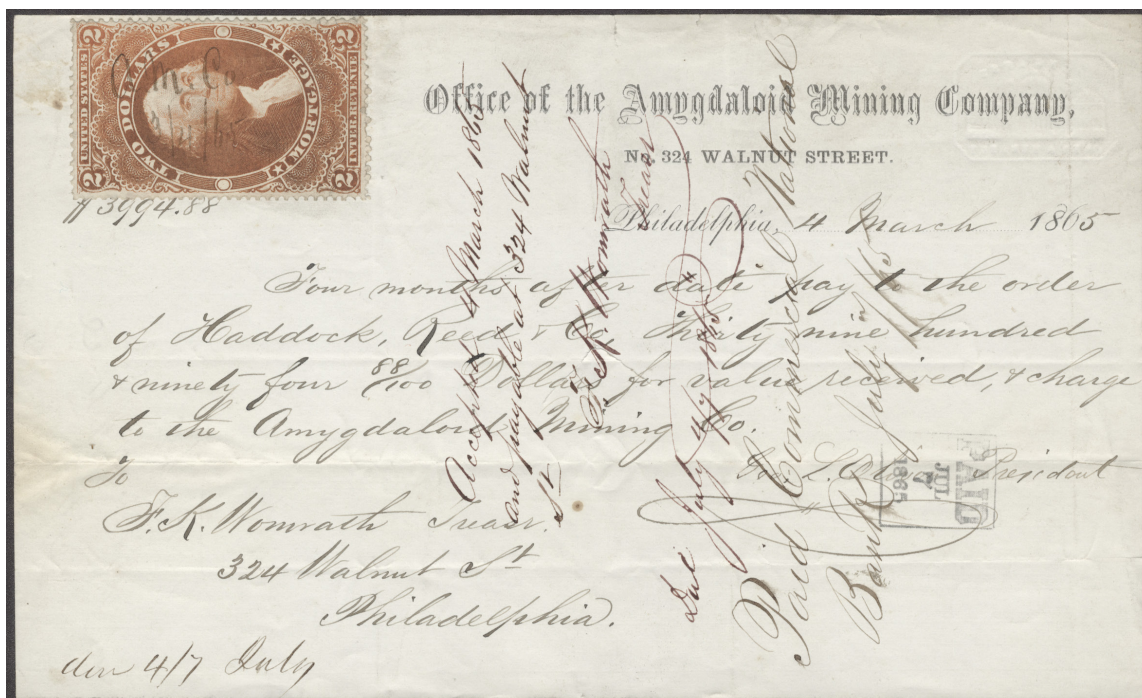 UNITED STATES
INTER. REVENUE
TWO DOLLARS
MORTGAGE
2
2
2
2
A M Co
3/4/65
Office of the Amygdaloid Mining Company,
No. 324 WALNUT STREET.
$3994.88
Philadelphia, 4 March 1865
Four months after date pay to the order
of Haddock, Reed & Co. Thirty nine hundred
& ninety four 88/100 Dollars for value received, & charge
to the Amygdaloid Mining Co.
President
To
F. K. Womrath Treasr.
324 Walnut St
Philadelphia.
due 4/7 July
Accepted 4 March 1865
and payable at 324 Walnut
St
F. K. Womrath
Treasr
Due July 4/7 1865
Paid Commercial National
Bank July 1/65
PAID
JUL
1865